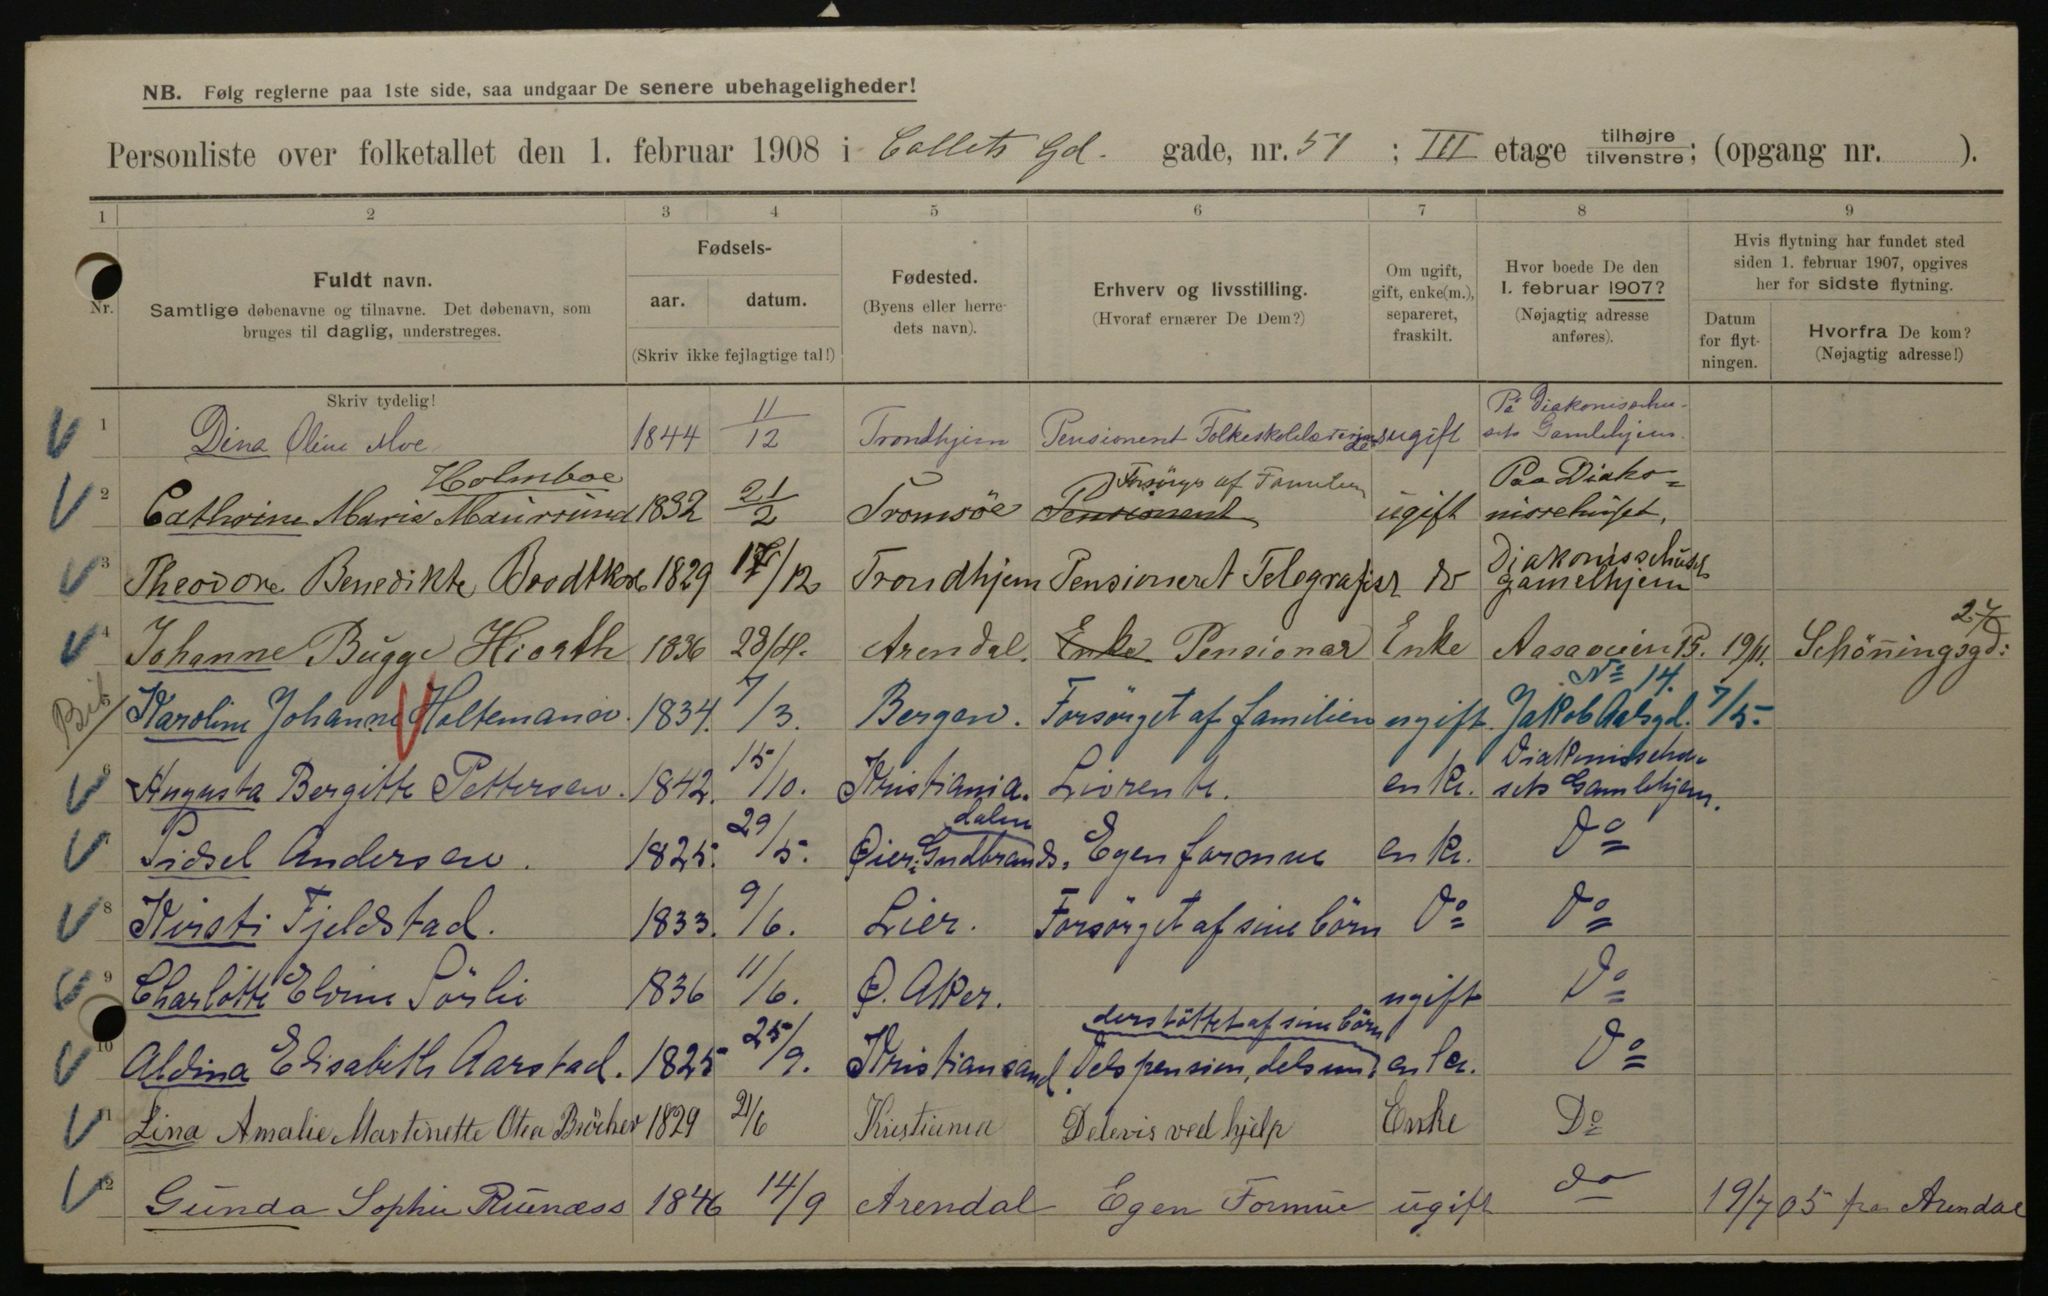 NB. Følg reglerne paa 1ste side, saa undgaar De senere ubehageligheder!
Personliste over folketallet den 1. februar 1908 i Collets Gd. gade, nr. 51 ; III etage tilhøjre tilvenstre; (opgang nr. ).
1 2 3 4 5 6 7 8 9
Nr.
Fuldt navn.
Samtlige døbenavne og tilnavne. Det døbenavn, som
bruges til daglig, understreges.
Skriv tydelig!
Fødsels-
aar. datum.
(Skriv ikke fejlagtige tal!)
Fødested.
(Byens eller herre-
dets navn).
Erhverv og livsstilling.
(Hvoraf ernærer De Dem?)
Om ugift,
gift, enke(m.),
separeret,
fraskilt.
Hvor boede De den
1. februar 1907?
(Nøjagtig adresse
anføres).
Hvis flytning har fundet sted
siden 1. februar 1907, opgives
her for sidste flytning.
Datum
for flyt-
ningen.
Hvorfra De kom?
(Nøjagtig adresse!)
1 Dina Oline Moe 1844 11/12 Trondhjem Pensionert Folkeskolelærerinde ugift På Diakonissehu-
sets Gamlehjem.
Holmboe
2 Cathrine Maria Maursund 1832 21/2 Tromsöe Pensionent Forsörges af Familien ugift Paa Diako-
nissehuset.
3 Theodore Benedikte Boodtker 1829 17/12 Trondhjem Pensioneret Telegrafist do Diakonissehusets
gamelhjem
4 Johanne Bugge Hiorth 1836 28/4. Arendal. Enke Pensionær Enke Aasaveien 15. 19/11. Schöningsgd: 27
Karoline Johanne Holtemann. 1834. 7/3. Bergen. Forsörget af familien ugift. Jakob Aalsgd. No 14. 7/5.
6 Augusta Bergitte Pettersen. 1842. 15/10. Kristiania. Livrente. enke. Diakonissehu-
sets Gamlehjem.
Sidsel Andersen. 1825. 29/5. Öier. Gudbrands. dalen Egen formue enke. Do
8 Kirsti Fjeldstad. 1833. 9/6. Lier. Forsörget af sine börn Do Do
9 Charlotte Elvine Sörlie 1836 11/6. Ö. Aker. ugift Do
10 Aldina Elisabeth Aarstad. 1825 25/9. Kristiansand. Dels pension, dels un- derstöttet af sine börn enke. Do
11 Lina Amalie Martinette Otea Bröcher 1829 21/6 Kristiania Delevis ved hjelp Enke Do
12 Gunda Sophie Ruenæss 1846 14/9 Arendal Egen Formue ugift do 19/7 05 fra Arendal